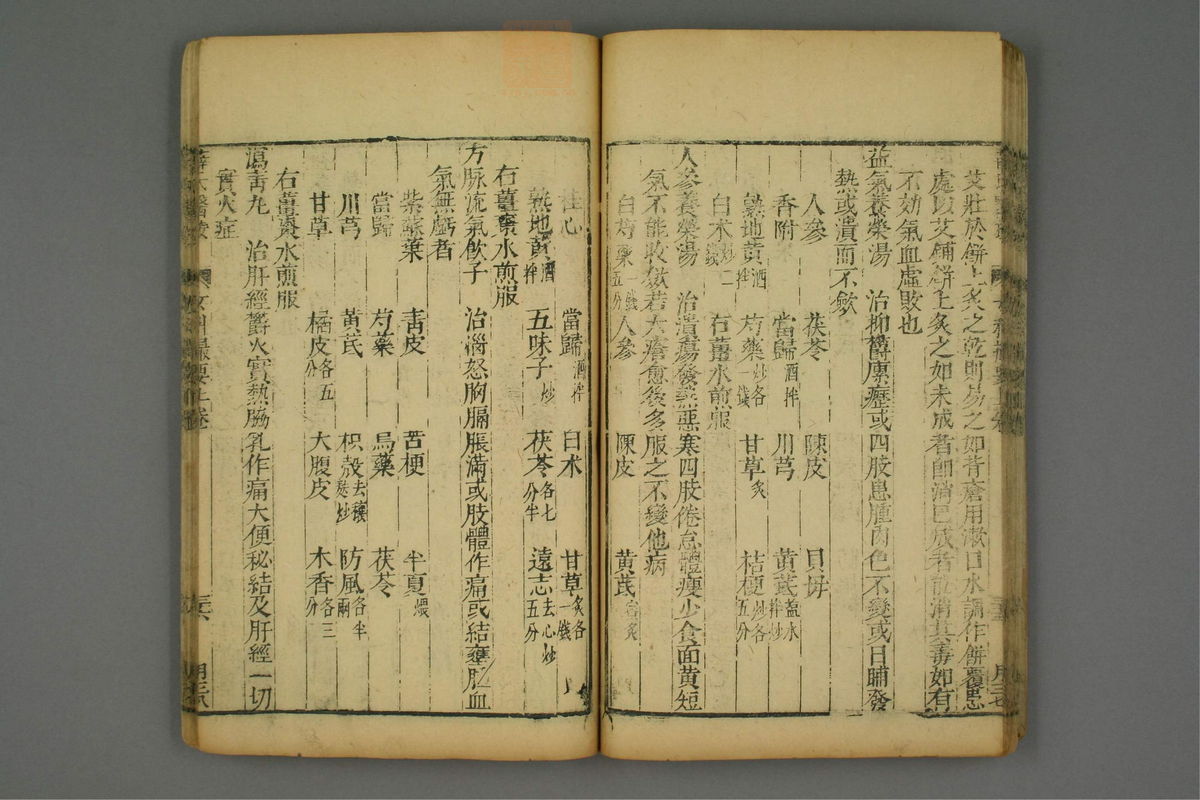 艾壯於餅上灸之乾則易之如青瘡用漱口水調作餅覆患
處以艾鋪餅上灸之如未成者即消已成者並消其毒如有
不効氣血虛敗也
益氣養榮湯 治抑鬱瘰癧或四肢患腫肉色不變或日晡發
熱或潰而不歛
人參 茯苓 陳皮 貝母
香附 當歸酒拌 川芎 黃芪盐水拌炒
熟地黃酒拌 芍藥炒各一錢 甘草炙 桔梗炒各五分
白术炒二錢 右薑水煎服
人參養榮湯 治潰瘍發熱惡寒四肢倦怠體瘦少食面黃短
氣不能收歛若大瘡愈後多服之不變他病
白芍藥一錢五分 人參 陳皮 黃芪蜜炙
桂心 當歸酒拌 白术 甘草炙各一錢
熟地黃酒拌 五味子炒 茯苓各七分半 遠志去心炒五分
右薑棗水煎服
方脉流氣飲子 治溜怒胸膈脹滿或肢體作痛或結壅胚血
氣無虧者
紫蘇葉 青皮 苦梗 半夏煨
當歸 芍藥 烏藥 茯苓
川芎 黃芪 枳殼去穰麸炒 防風各半兩
甘草 橘皮各五分 大腹皮 木香各三分
右薑棗水煎服
瀉青丸 治肝經鬱火實熱脇乳作痛大便秘結及肝經一切
實火症
女科撮要上卷